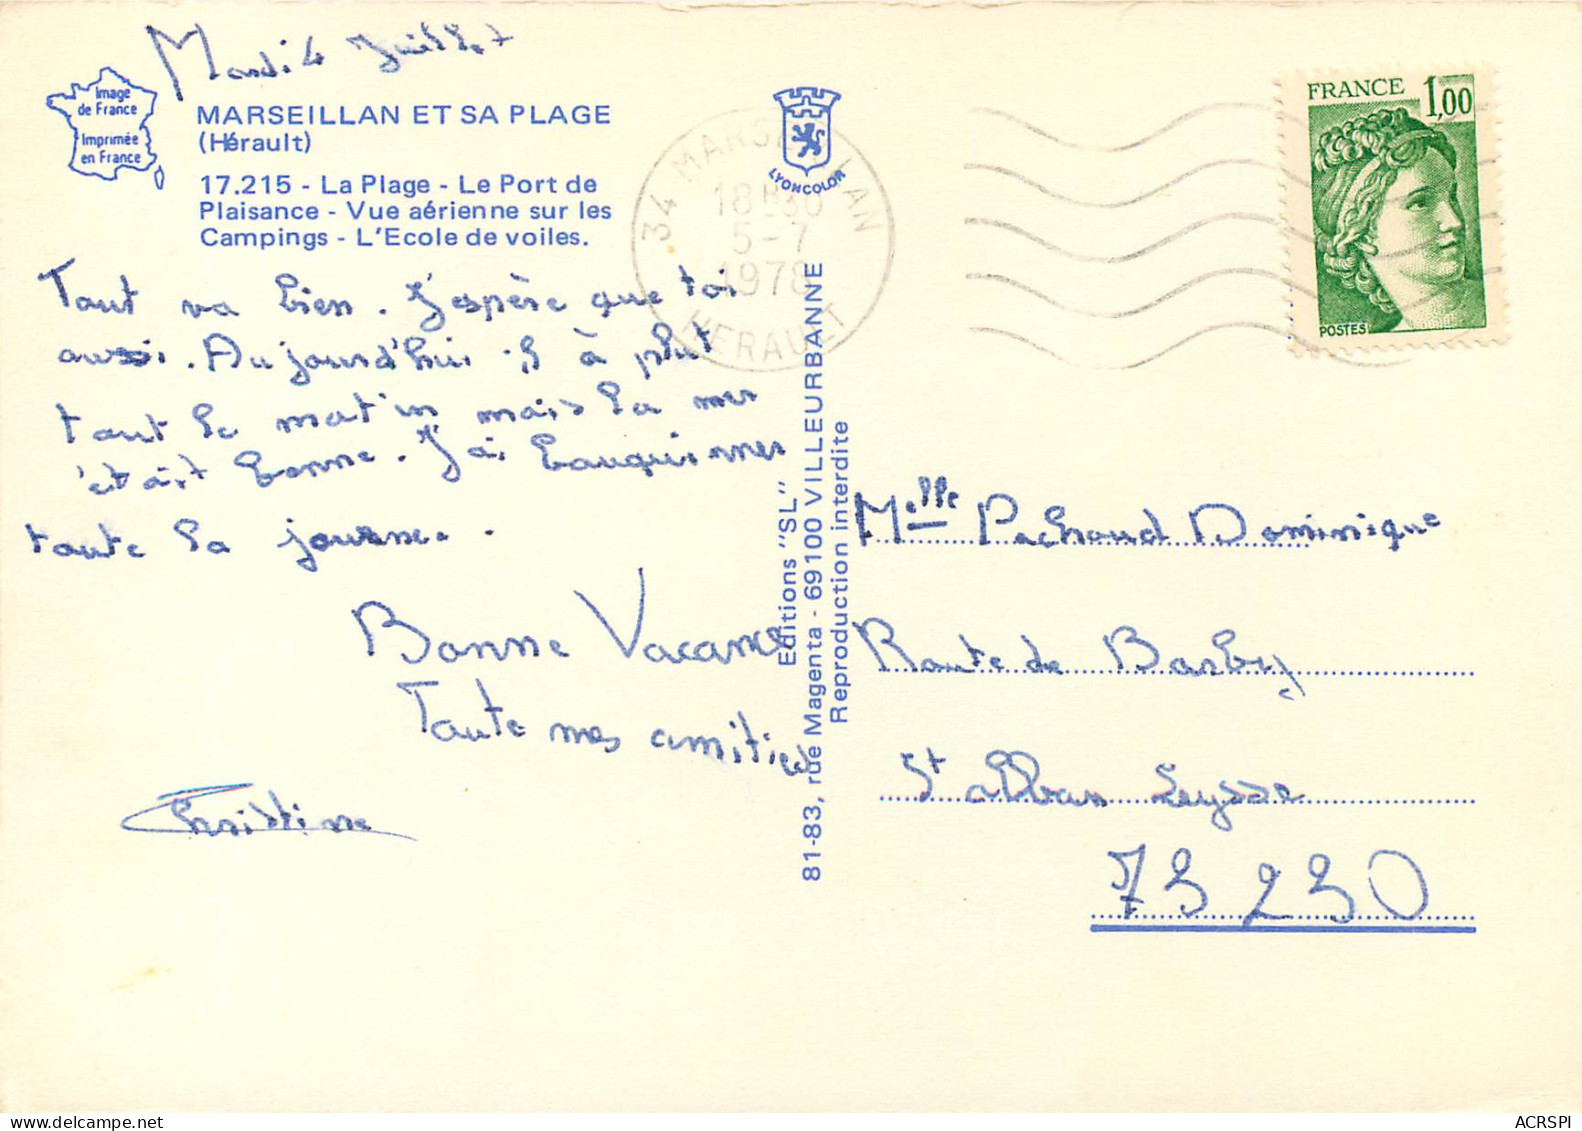 Mardi 4 Juillet
Image
de France
Imprimée
en France
MARSEILLAN ET SA PLAGE
(Hérault)
17.215 - La Plage - Le Port de
Plaisance - Vue aérienne sur les
Campings - L'Ecole de voiles.
Tout va bien. J'espère que toi
aussi. Aujourd'hui il à plut
tout le matin mais la mer
était bonne. J'ai bouquinner
toute la journée.
Bonne Vacances
Toute mes amitiés
Christine
LYONCOLOR
34 MARSEILLAN
18H30
5-7
1978
HERAULT
Editions "SL"
81-83, rue Magenta - 69100 VILLEURBANNE
Reproduction interdite
FRANCE 1,00
POSTES
Melle Pachoud Dominique
Route de Barby
St alban Leysse
73230
ACRSPI